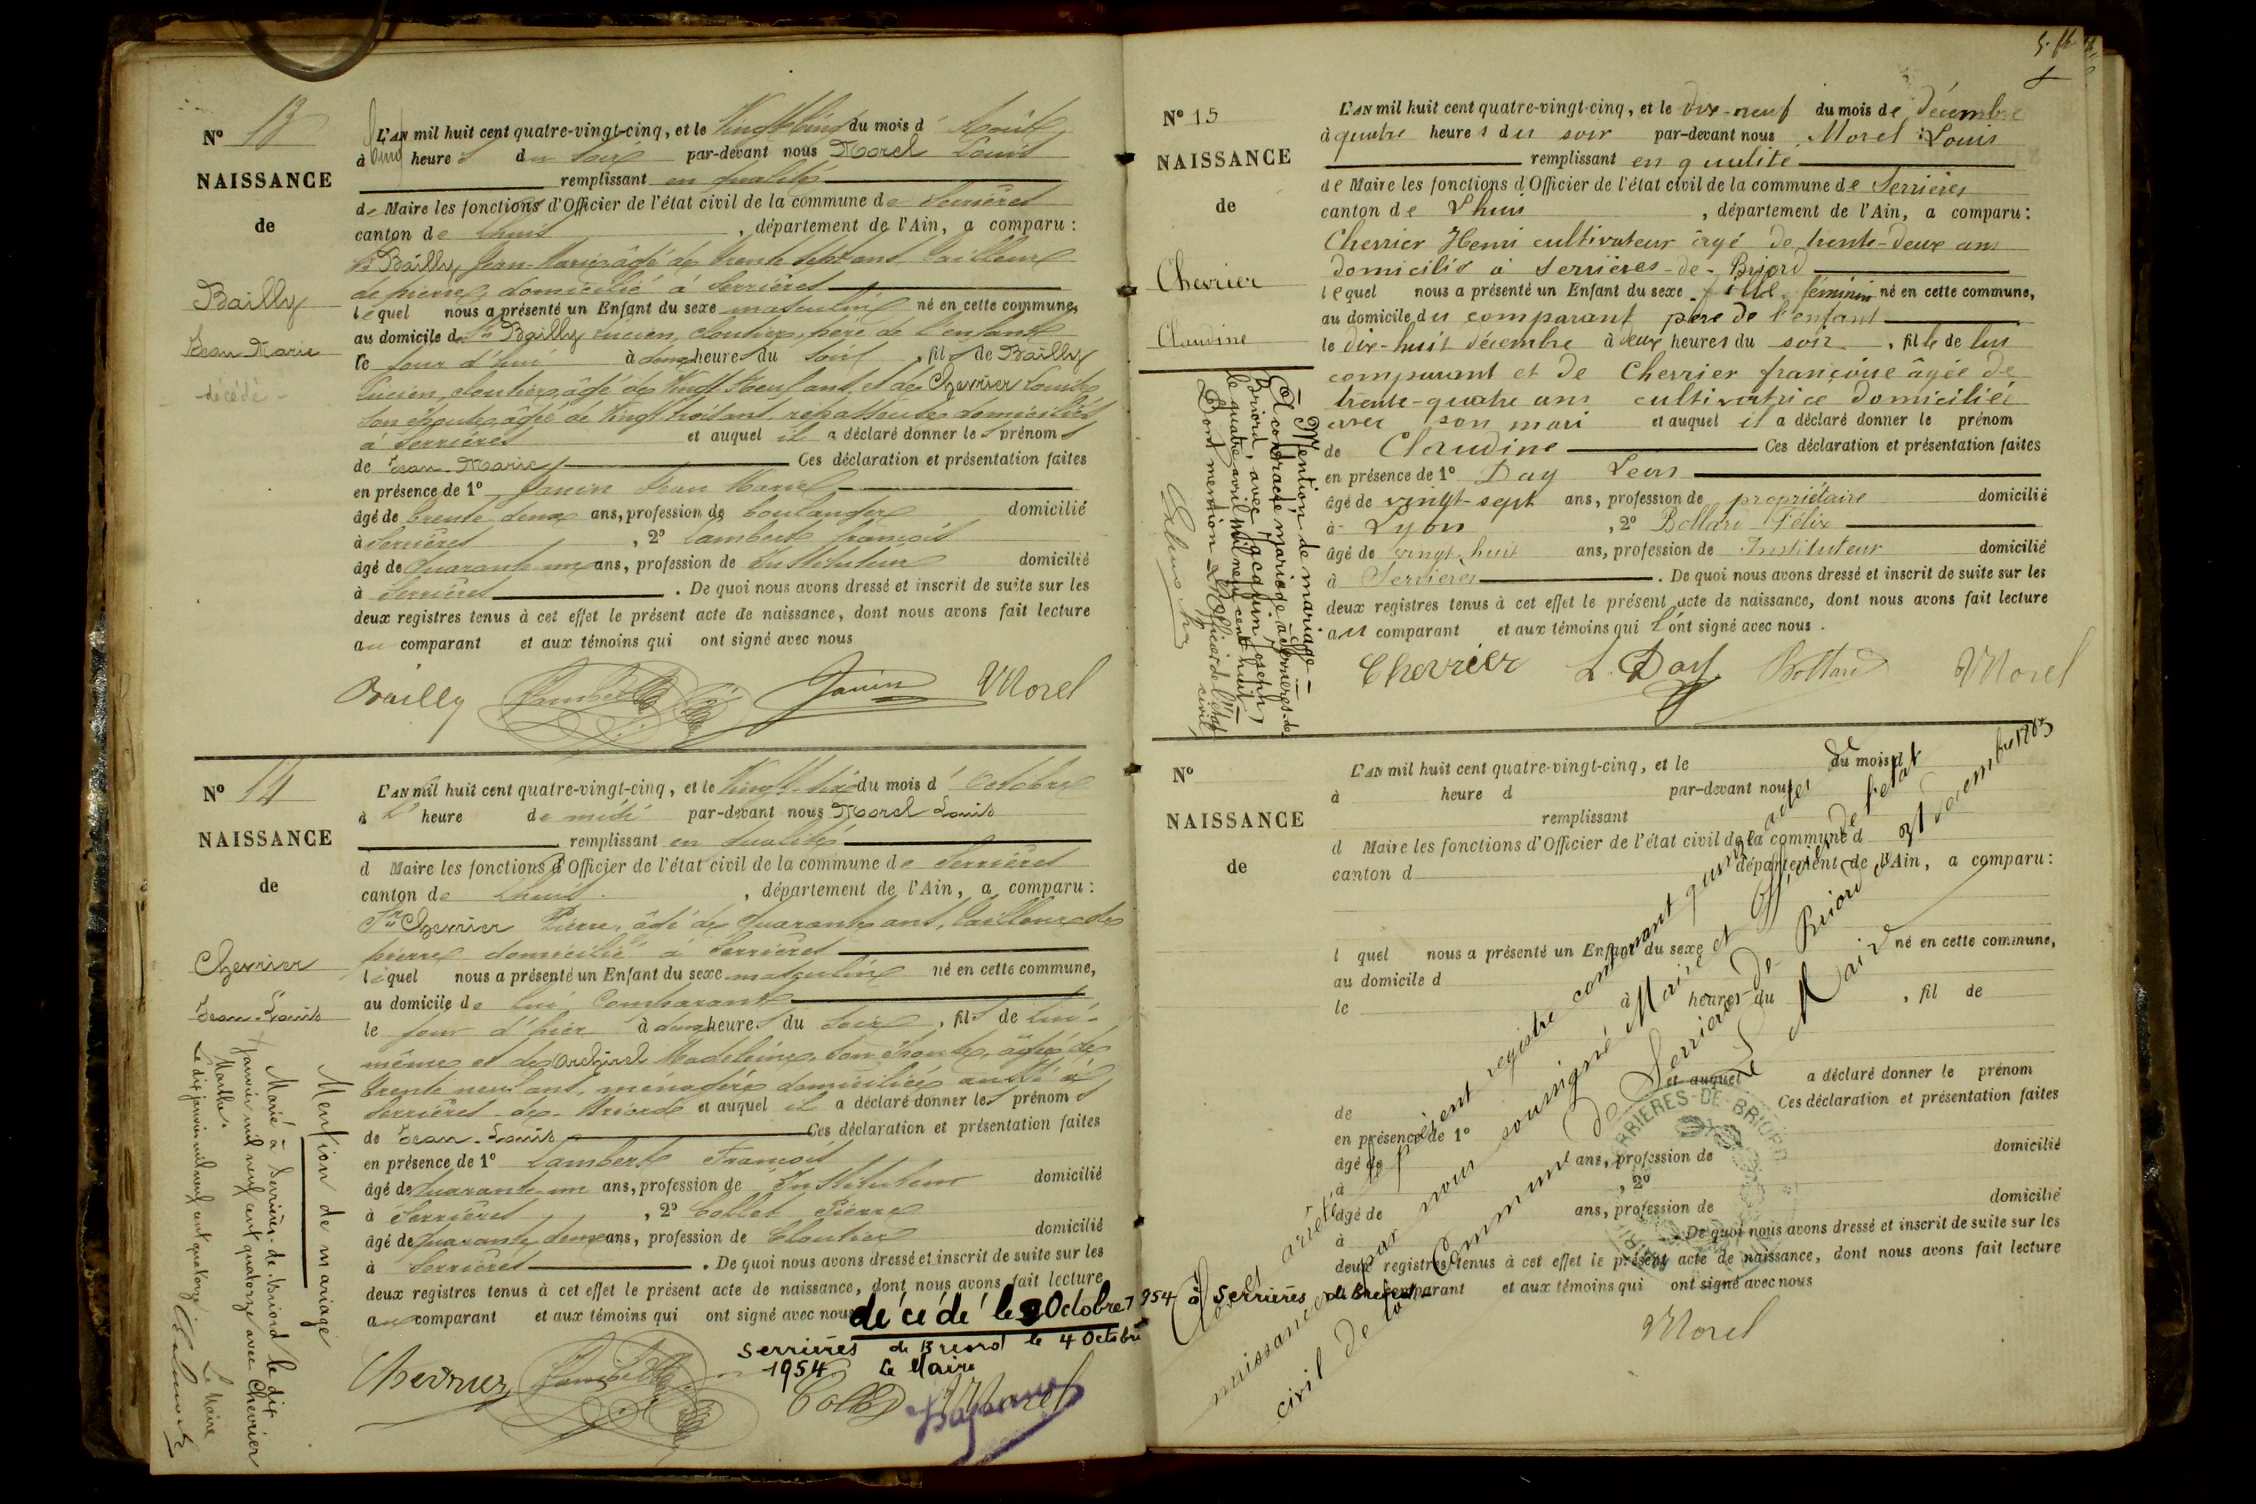 N° 13
NAISSANCE
de
Bailly
Jean Marie
décédé
L'AN mil huit cent quatre-vingt-cinq, et le Vingt Cinq du mois d' Août
à cinq heures du soir par-devant nous Morel Louis
remplissant en qualité
de Maire les fonctions d'Officier de l'état civil de la commune de Serrières
canton de Lhuis, département de l'Ain, a comparu :
Bailly Jean-Marie âgé de trente sept ans tailleur
de pierres, domicilié à Serrières
lequel nous a présenté un Enfant du sexe masculin né en cette commune,
au domicile de Bailly Lucien, cloutier, père de l'enfant
le jour d'hui à cinq heures du soir, fils de Bailly
Lucien, cloutier, âgé de vingt neuf ans et de Chevrier Louise
son épouse, âgée de vingt huit ans, domiciliés
à Serrières et auquel il a déclaré donner les prénoms
de Jean-Marie Ces déclaration et présentation faites
en présence de 1° Janin Jean Marie
âgé de trente deux ans, profession de boulanger domicilié
à Serrières, 2° Lambert François
âgé de quarante un ans, profession de Instituteur domicilié
à Serrières. De quoi nous avons dressé et inscrit de suite sur les
deux registres tenus à cet effet le présent acte de naissance, dont nous avons fait lecture
au comparant et aux témoins qui ont signé avec nous
Bailly Lambert Janin Morel
N° 14
NAISSANCE
de
Chevrier
Jean-Louis
Mention de mariage
Marié à Serrières-de-Briord le dix
janvier mil neuf cent quatorze avec Chevrier
Marthe.
Le dix janvier mil neuf cent quatorze
Le Maire
L'AN mil huit cent quatre-vingt-cinq, et le Vingt-six du mois d' Octobre
à l' heure de midi par-devant nous Morel Louis
remplissant en qualité
d Maire les fonctions d'Officier de l'état civil de la commune de Serrières
canton de Lhuis, département de l'Ain, a comparu :
Chevrier Pierre, âgé de quarante ans, tailleur de
pierres domicilié à Serrières
lequel nous a présenté un Enfant du sexe masculin né en cette commune,
au domicile de lui Comparant
le jour d'hier à cinq heures du soir, fils de lui-
même et de Madeleine, son épouse, âgée de
trente neuf ans, ménagère domiciliée aussi à
Serrières-de-Briord et auquel il a déclaré donner les prénoms
de Jean-Louis Ces déclaration et présentation faites
en présence de 1° Lambert François
âgé de quarante un ans, profession de Instituteur domicilié
à Serrières, 2° Collet Pierre
âgé de quarante deux ans, profession de Cloutier domicilié
à Serrières. De quoi nous avons dressé et inscrit de suite sur les
deux registres tenus à cet effet le présent acte de naissance, dont nous avons fait lecture
au comparant et aux témoins qui ont signé avec nous
décédé le Octobre 1954 à Serrières de Briord
Serrières de Briord le 4 Octobre
1954 Le Maire
Chevrier Lambert Collet Morel
N° 15
NAISSANCE
de
Chevrier
Claudine
Mention de mariage
Et contracté mariage à Serrières-de-
Briord, avec Jacquin Joseph,
le quatre avril mil neuf cent huit
Dont mention L'Officier de l'état
civil
L'AN mil huit cent quatre-vingt-cinq, et le dix-neuf du mois de décembre
à quatre heures du soir par-devant nous Morel Louis
remplissant en qualité
de Maire les fonctions d'Officier de l'état civil de la commune de Serrières
canton de Lhuis, département de l'Ain, a comparu :
Chevrier Henri cultivateur âgé de trente-deux ans
domicilié à Serrières-de-Briord
lequel nous a présenté un Enfant du sexe féminin né en cette commune,
au domicile du comparant père de l'enfant
le dix-huit décembre à deux heures du soir, fille de lui
comparant et de Chevrier françoise âgée de
trente-quatre ans cultivatrice domiciliée
avec son mari et auquel il a déclaré donner le prénom
de Claudine Ces déclaration et présentation faites
en présence de 1° Day Léon
âgé de vingt-sept ans, profession de propriétaire domicilié
à Lyon, 2° Bottari Félix
âgé de vingt-huit ans, profession de Instituteur domicilié
à Serrières. De quoi nous avons dressé et inscrit de suite sur les
deux registres tenus à cet effet le présent acte de naissance, dont nous avons fait lecture
au comparant et aux témoins qui l'ont signé avec nous.
Chevrier L. Day Morel
N°
NAISSANCE
de
L'AN mil huit cent quatre-vingt-cinq, et le du mois d
à heure d par-devant nous
remplissant
d Maire les fonctions d'Officier de l'état civil de la commune d
canton d département de l'Ain, a comparu :
l quel nous a présenté un Enfant du sexe né en cette commune,
au domicile d
le à heures du, fil de
et auquel a déclaré donner le prénom
de Ces déclaration et présentation faites
en présence de 1°
âgé de ans, profession de domicilié
à, 2°
âgé de ans, profession de domicilié
à De quoi nous avons dressé et inscrit de suite sur les
deux registres tenus à cet effet le présent acte de naissance, dont nous avons fait lecture
comparant et aux témoins qui ont signé avec nous
Clos et arrêté le présent registre contenant quinze actes de
naissance par nous soussigné Maire et Officier de l'état
civil de la Commune de Serrières-de-Briord le 31 décembre 1885
Le Maire
SERRIERES-DE-BRIORD
MAIRIE
Morel